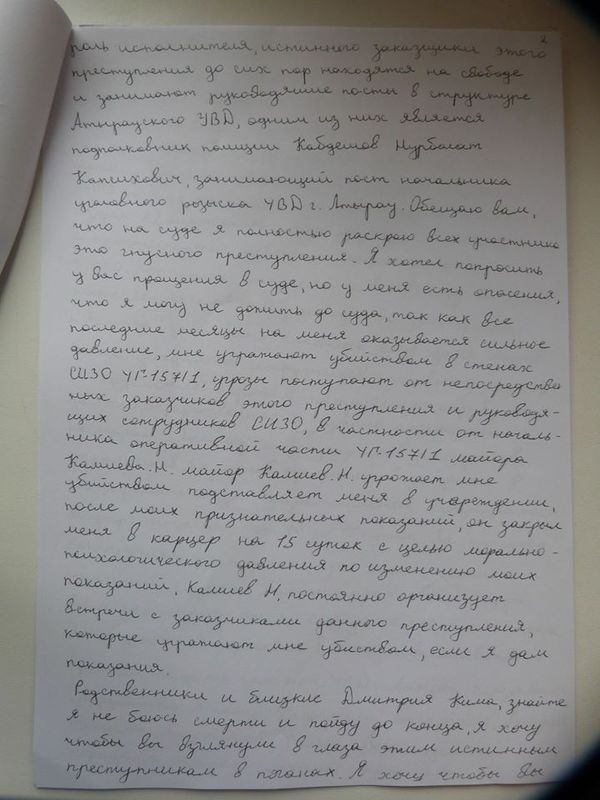 2
роль исполнителя, истинного заказщики этого
преступления до сих пор находятся на свободе
и занимают руководящие посты в структуре
Атырауского УВД, одним из них является
подполковник полиции Кабдешов Нурболат
Капихович, занимающий пост начальника
уголовного розыска УВД г. Атырау. Обещаю вам,
что на суде я полностью раскрою всех участнико
это гнусного преступления. Я хотел попросить
у вас прощения в суде, но у меня есть опасения,
что я могу не дожить до суда, так как все
последние месяцы на меня оказывается сильное
давление, мне угражают убийством в стенах
СИЗО УГ-157/1, угрозы поступают от непосредстве
нных заказчиков этого преступления и руководя-
щих сотрудников СИЗО, в частности от началь-
ника оперативной части УГ-157/1 майора
Калиева.Н. майор Калиев.Н. угражает мне
убийством подставляет меня в учереждении,
после моих признательных показаний, он закрыл
меня в карцер на 15 суток с целью морально-
психологического давления по изменению моих
показаний. Калиев Н. постоянно организует
встречи с заказчиками данного преступления,
которые угражают мне убиством, если я дам
показания.
Родственники и близкие Дмитрия Кима, знайте
я не боюсь смерти и пойду до конца, я хочу
чтобы вы взглянули в глаза этим истинным
преступникам в погонах. Я хочу чтобы вы